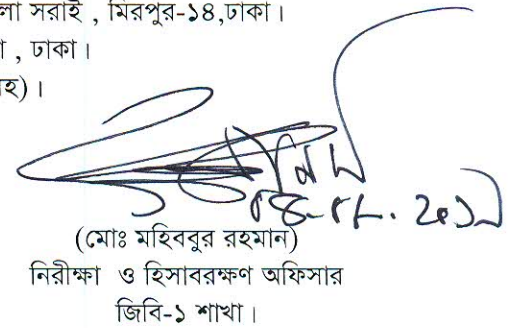 লা সরাই , মিরপুর-১৪,ঢাকা।
া , ঢাকা।
হ)।
(মোঃ মহিববুর রহমান)
নিরীক্ষা ও হিসাবরক্ষণ অফিসার
জিবি-১ শাখা।